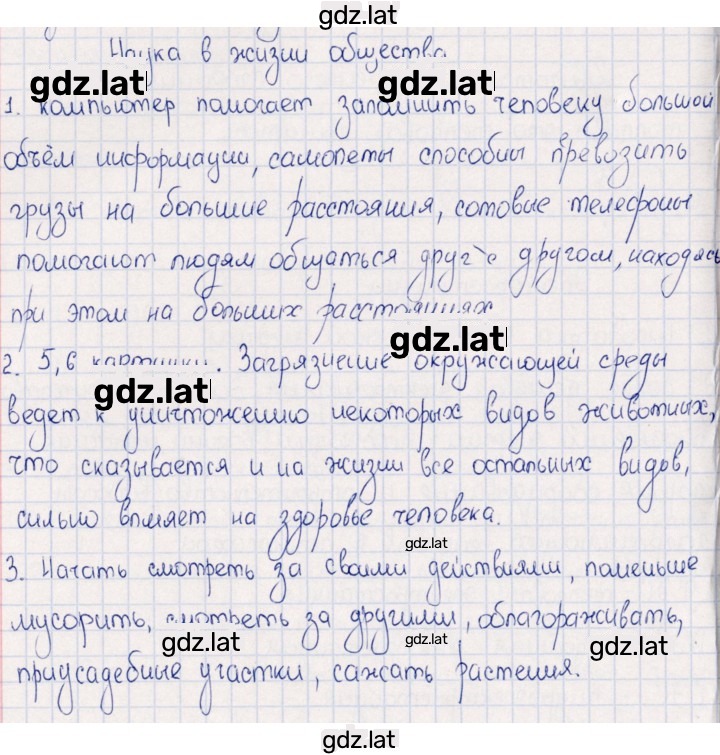 gdz.lat
Наука в жизни общества.
gdz.lat
gdz.lat
1. Компьютер помогает запомнить человеку большой
объём информации, самолеты способны превозить
грузы на большие расстояния, сотовые телефоны
помогают людям общаться друг с другом, находясь
при этом на больших расстояниях
gdz.lat
2. 5,6 картинки. Загрязнение окружающей среды
gdz.lat
ведет к уничтожению некоторых видов животных,
что сказывается и на жизни все остальных видов,
сильно влияет на здоровье человека.
gdz.lat
3. Начать смотреть за своими действиями, поменьше
мусорить, смотреть за другими, облагораживать,
gdz.lat
gdz.lat
gdz.lat
приусадебные участки, сажать растения.
gdz.lat